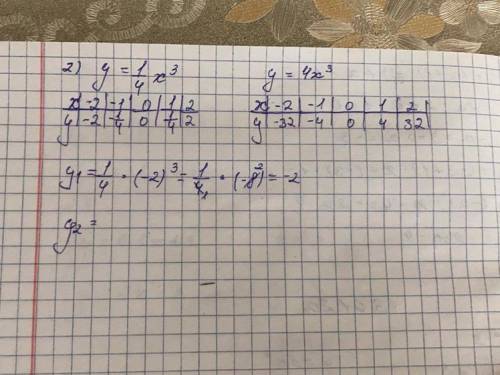 2) y = 1/4 x³
x | -2 | -1 | 0 | 1 | 2
y | -2 | -1/4 | 0 | 1/4 | 2
y = 4x³
x | -2 | -1 | 0 | 1 | 2
y | -32 | -4 | 0 | 4 | 32
y₁ = 1/4 · (-2)³ = 1/4₁ · (-8²) = -2
y₂ =